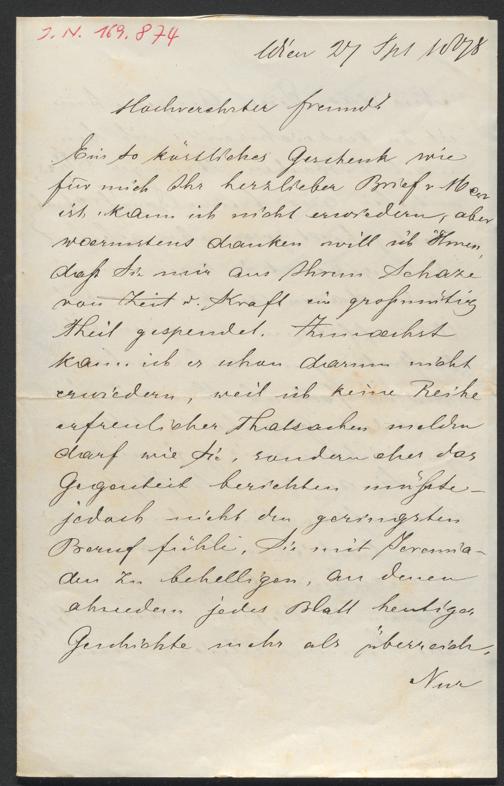 J. N. 169.874
Wien 27 Spt 1878
Hochverehrter Freund!
Ein so köstliches Geschenk wie
für mich Ihr herzlieber Brief v.
ist, kann ich nicht erwiedern, aber
warmstens danken will ich Ihnen,
daß Sie mir aus Ihrem Schaze
von Zeit u. Kraft ein großmütig
Theil gespendet. Zunaechst
kann ich es schon darum nicht
erwiedern, weil ich keine Reihe
erfreulicher Thatsachen melden
darf wie Sie, sondern eher das
Gegenteil berichten müßte –
jedoch nicht den geringsten
Beruf fühle, Sie mit Jeremia-
den zu behelligen, an denen
ohnedem jedes Blatt heutiger
Geschichte mehr als überreich.
Nur